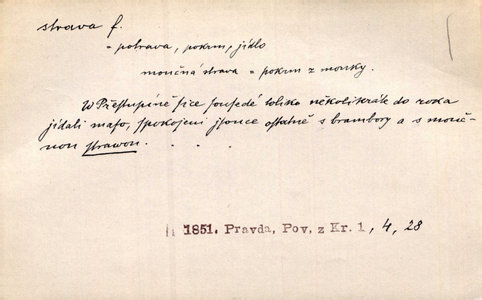 strava f.
= potrava, pokrm, jídlo
moučná strava = pokrm z mouky.
W Přestupině sice sousedé toliko několikráte do roka
jídali maso, spokojeni jsouce ostatně s brambory a s mouč-
nou strawou. . . .
1851. Pravda, Pov. z Kr. 1, 4, 28